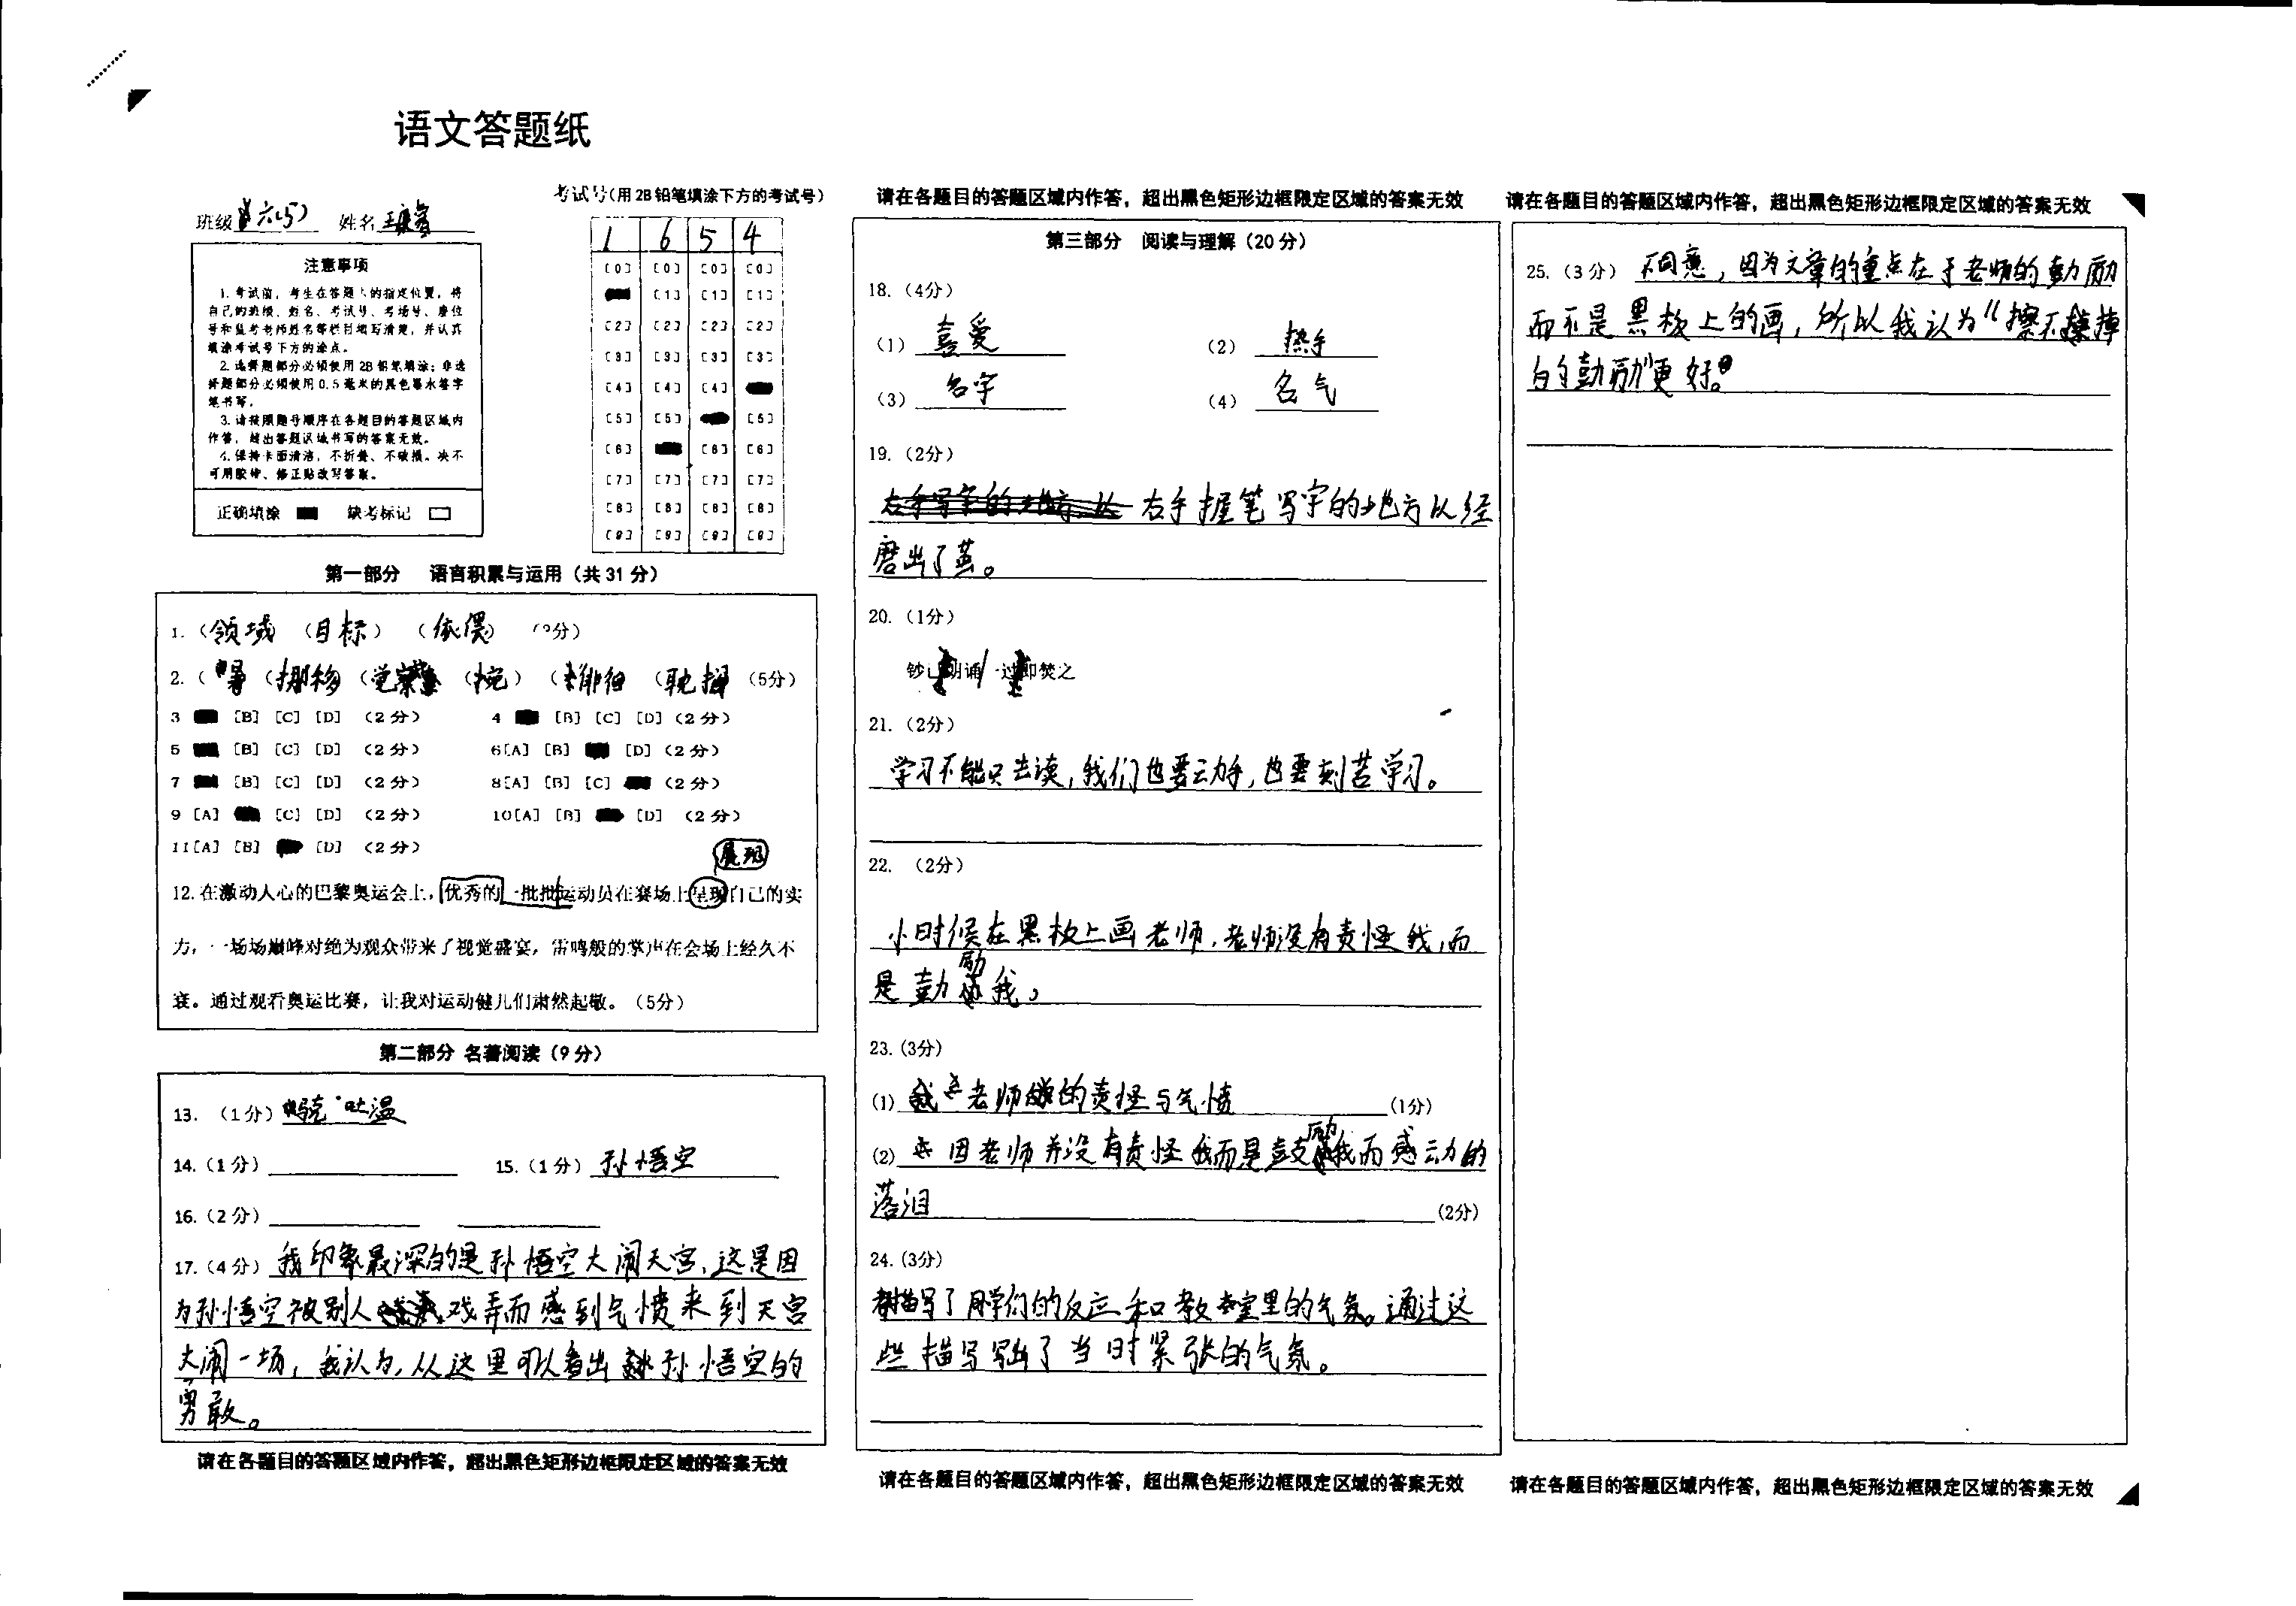 语文答题纸
班级 六(5) 姓名 王
考试号(用2B铅笔填涂下方的考试号)
1 6 5 4
[0] [0] [0] [0]
[1] [1] [1]
[2] [2] [2] [2]
[3] [3] [3] [3]
[4] [4] [4]
[5] [5] [5]
[6] [6] [6]
[7] [7] [7] [7]
[8] [8] [8] [8]
[9] [9] [9] [9]
注意事项
1.考试前,考生在答题卡的指定位置,将
自己的班级、姓名、考试号、考场号、座位
号和监考老师姓名等栏目填写清楚,并认真
填涂考试号下方的涂点。
2.选择题部分必须使用2B铅笔填涂;非选
择题部分必须使用0.5毫米的黑色墨水签字
笔书写。
3.请按照题号顺序在各题目的答题区域内
作答,超出答题区域书写的答案无效。
4.保持卡面清洁,不折叠、不破损。决不
可用胶带、修正贴改写答案。
正确填涂 缺考标记
第一部分 语言积累与运用(共31分)
1.(领域 (目标) (依偎) 分)
2.( (挪移 (觉察 (惋) (徘徊 (耽搁 (5分)
3 [B] [C] [D] (2分) 4 [B] [C] [D] (2分)
5 [B] [C] [D] (2分) 6[A] [B] [D] (2分)
7 [B] [C] [D] (2分) 8[A] [B] [C] (2分)
9 [A] [C] [D] (2分) 10[A] [B] [D] (2分)
11[A] [B] [D] (2分)
展现
12.在激动人心的巴黎奥运会上,优秀的一批批运动员在赛场上呈现自己的实
力,一场场巅峰对绝为观众带来了视觉盛宴,雷鸣般的掌声在会场上经久不
衰。通过观看奥运比赛,让我对运动健儿们肃然起敬。(5分)
第二部分 名著阅读(9分)
13. (1分) 马克·吐温
14.(1分) 15.(1分) 孙悟空
16.(2分)
17.(4分) 我印象最深的是孙悟空大闹天宫,这是因
为孙悟空被别人戏弄而感到气愤来到天宫
大闹一场,我认为,从这里可以看出孙悟空的
勇敢。
请在各题目的答题区域内作答,超出黑色矩形边框限定区域的答案无效
请在各题目的答题区域内作答,超出黑色矩形边框限定区域的答案无效
第三部分 阅读与理解(20分)
18.(4分)
(1) 喜爱 (2) 热手
(3) 名字 (4) 名气
19.(2分)
右手写字的地方以 右手握笔写字的地方以经
磨出了茧。
20.(1分)
钞已朗诵一过即焚之
21.(2分)
学习不能只去读,我们也要动手,也要刻苦学习。
22. (2分)
小时候在黑板上画老师,老师没有责怪我,而
是鼓励我。
23.(3分)
(1) 老师的责怪与气愤 (1分)
(2) 因老师并没有责怪我而是鼓励我而感动的
落泪 (2分)
24.(3分)
描写了同学们的反应和教室里的气氛。通过这
些描写写出了当时紧张的气氛。
请在各题目的答题区域内作答,超出黑色矩形边框限定区域的答案无效
请在各题目的答题区域内作答,超出黑色矩形边框限定区域的答案无效
25.(3分) 不同意,因为文章的重点在于老师的鼓励
而不是黑板上的画,所以我认为“擦不掉
的鼓励”更好。
请在各题目的答题区域内作答,超出黑色矩形边框限定区域的答案无效